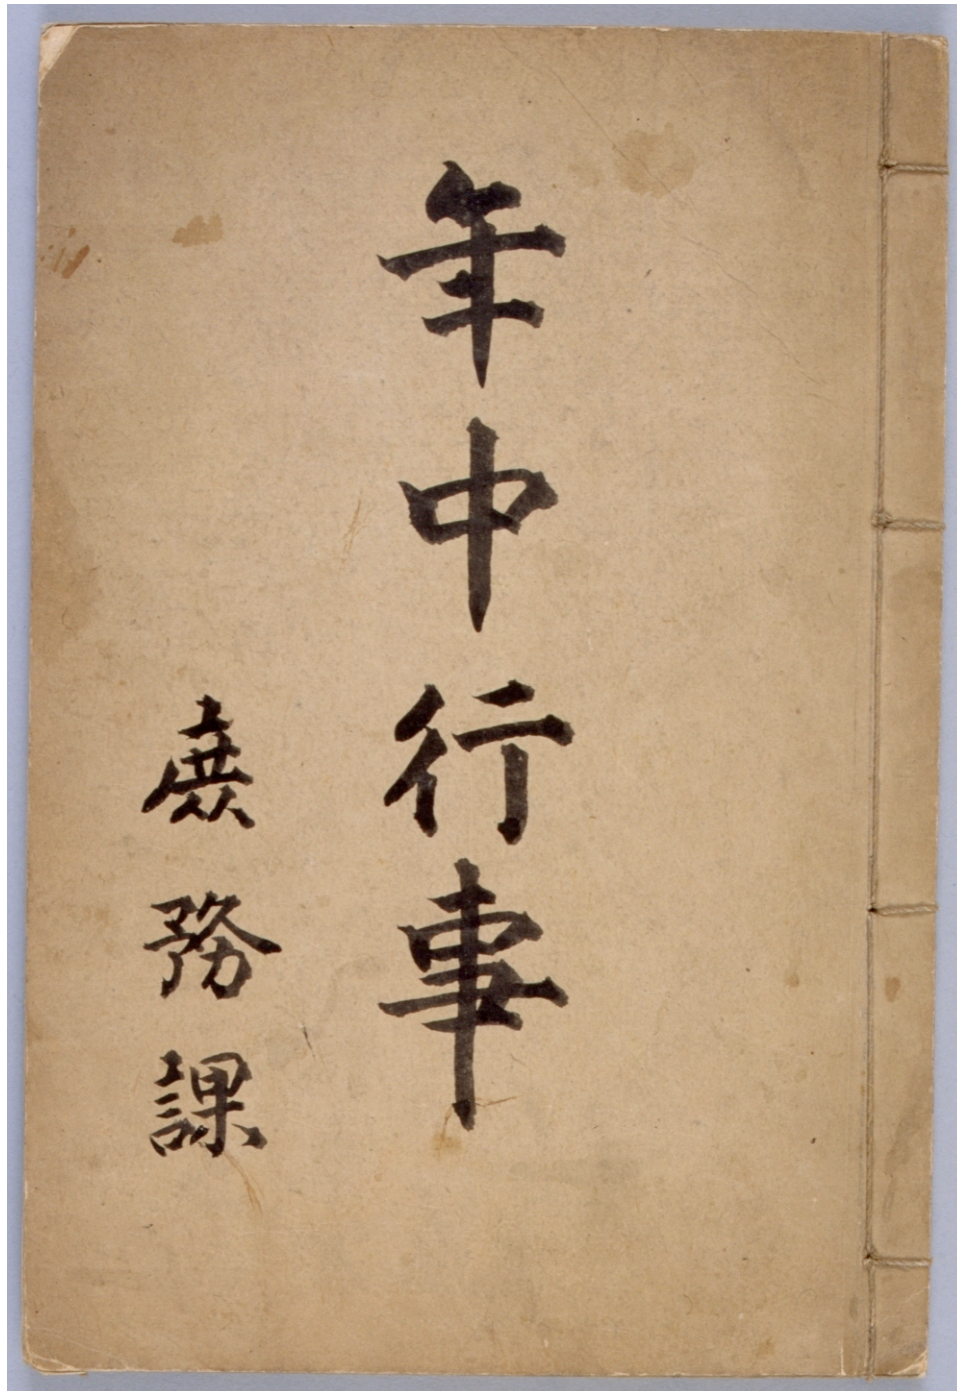 年中行事
庶務課